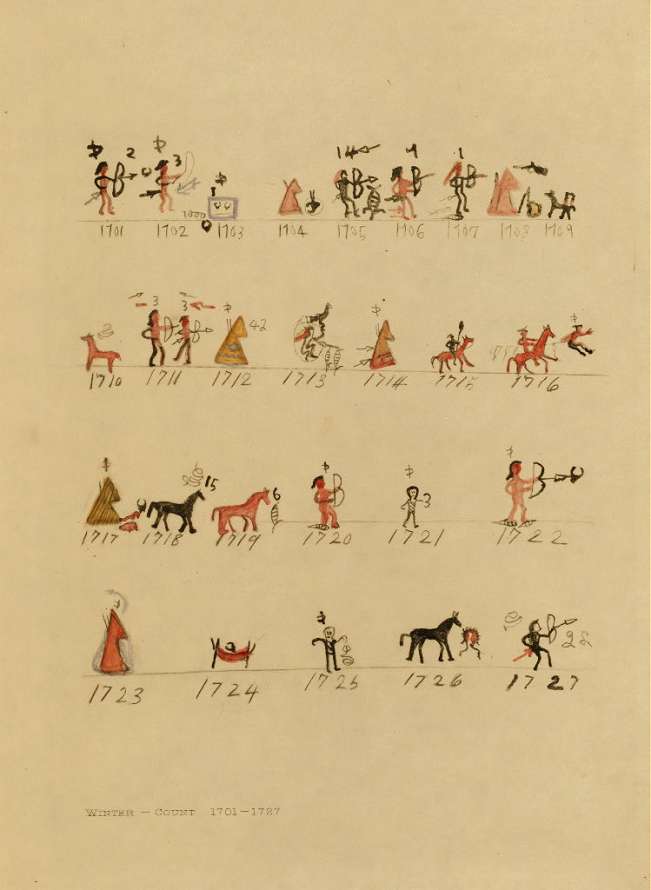 2 3 14 4 1
1000
1701 1702 1703 1704 1705 1706 1707 1708 1709
3 3 42
1710 1711 1712 1713 1714 1715 1716
15 6 3
1717 1718 1719 1720 1721 1722
1723 1724 1725 1726 1727
WINTER — COUNT 1701—1727